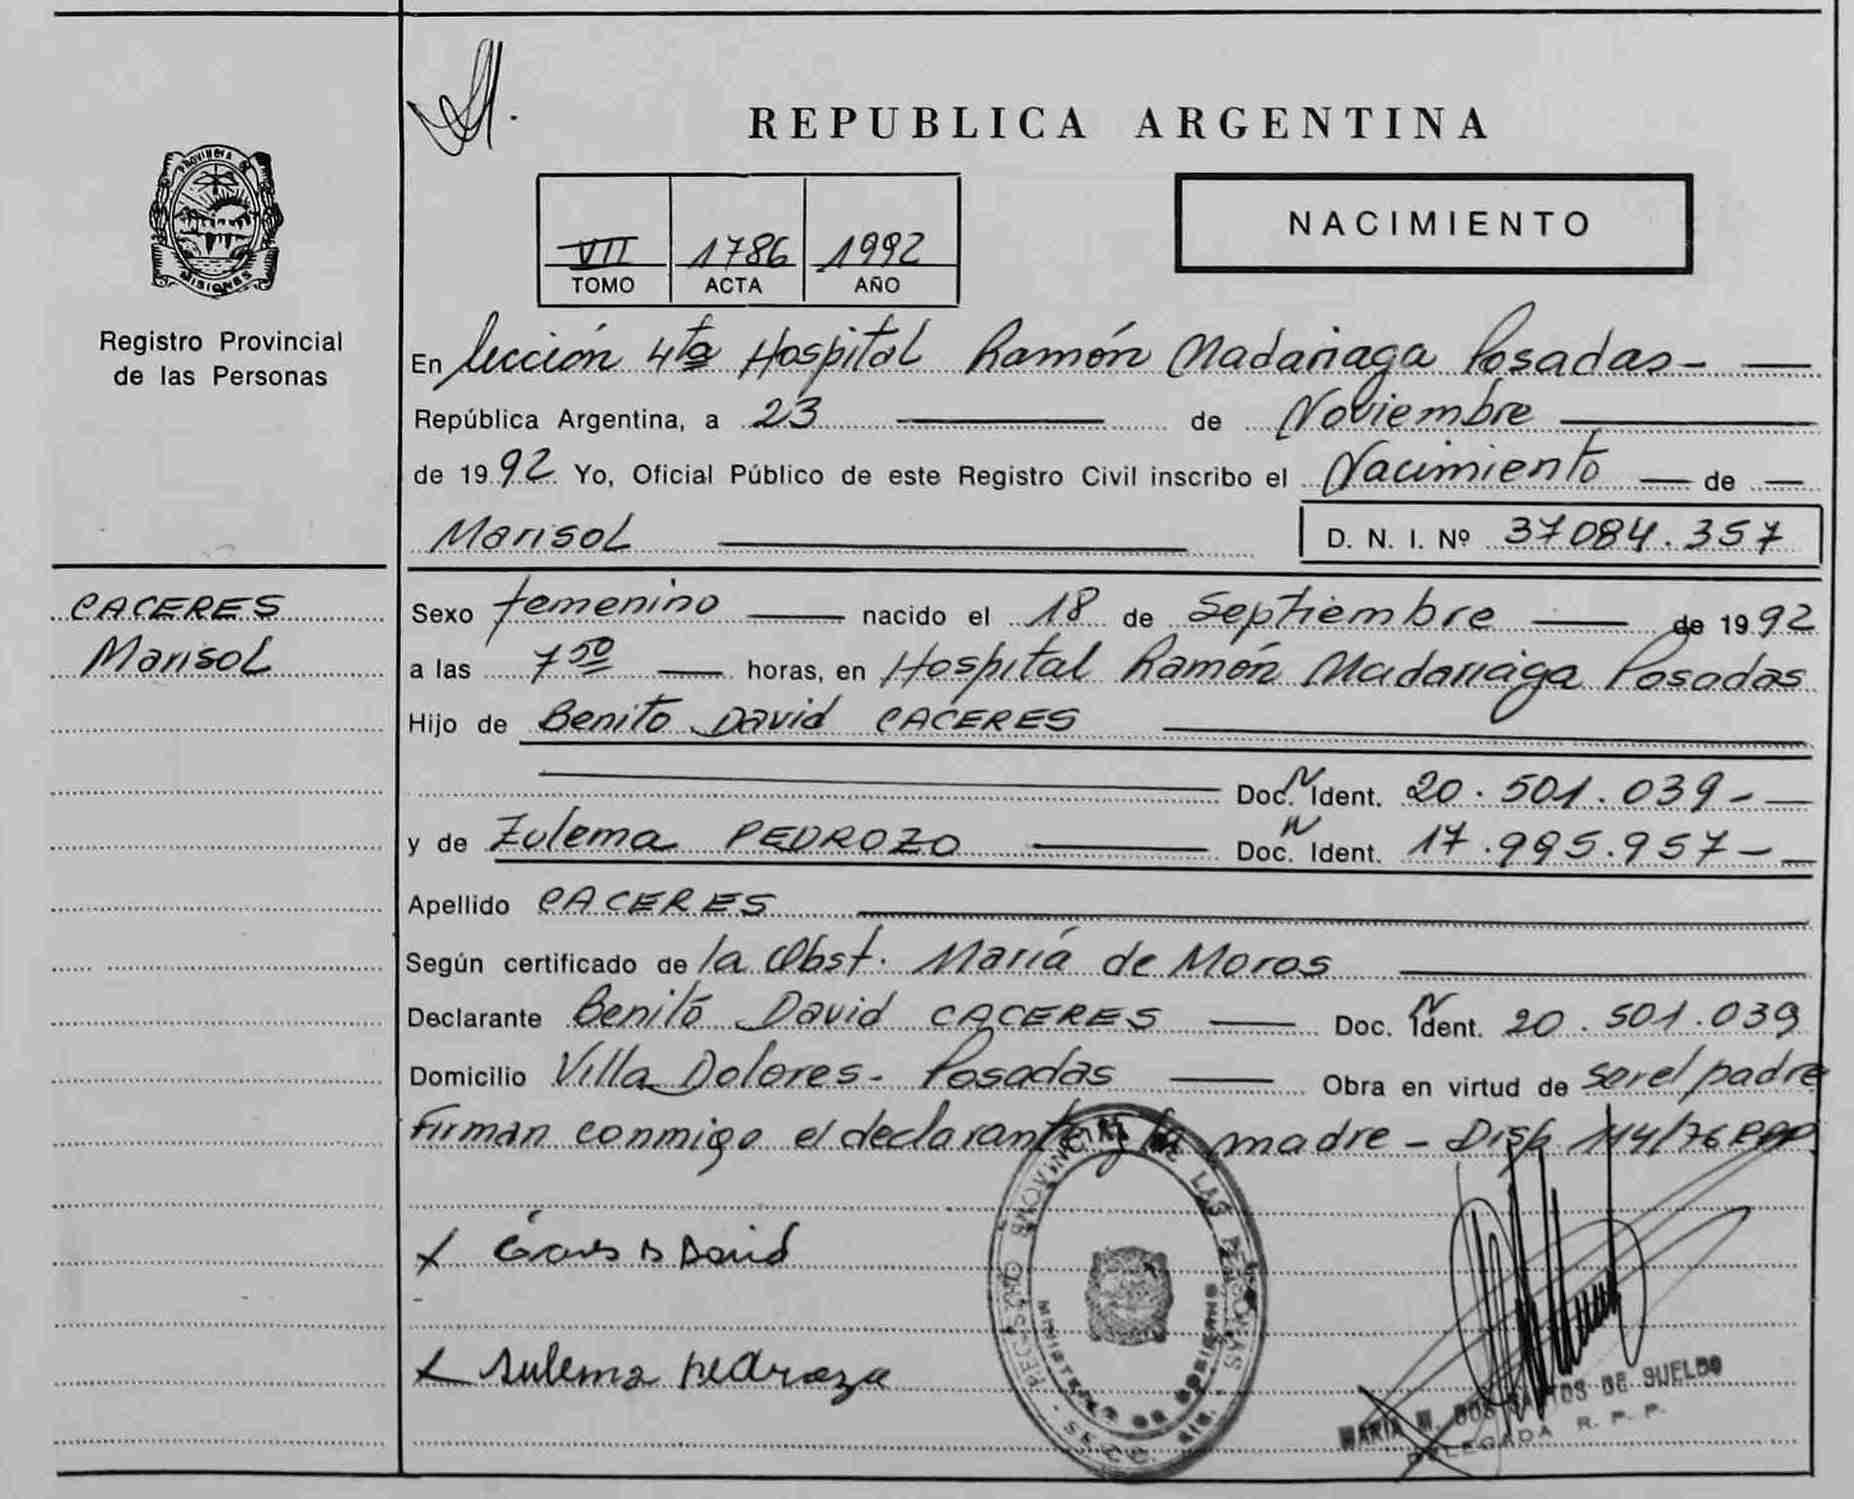 PROVINCIA DE
MISIONES
Registro Provincial
de las Personas
CACERES
Marisol
REPUBLICA ARGENTINA
VII 1786 1992
TOMO ACTA AÑO
NACIMIENTO
En Sección 4ta Hospital Ramón Madariaga Posadas
República Argentina, a 23 de Noviembre
de 1992 Yo, Oficial Público de este Registro Civil inscribo el Nacimiento de
Marisol D. N. I. Nº 37084.357
Sexo femenino nacido el 18 de Septiembre de 1992
a las 7 50 horas, en Hospital Ramón Madariaga Posadas
Hijo de Benito David CACERES
Doc. N Ident. 20.501.039
y de Zulema PEDROZO Doc. N Ident. 17.995.957
Apellido CACERES
Según certificado de la Obst. María de Moros
Declarante Benito David CACERES Doc. N Ident. 20.501.039
Domicilio Villa Dolores - Posadas Obra en virtud de ser el padre
Firman conmigo el declarante y la madre - Disp. 114/76 RPP
David
Zulema Pedroza
REGISTRO PROVINCIAL DE LAS PERSONAS
MINISTERIO DE GOBIERNO
MARIA M. DOS SANTOS DE SUELDO
DELEGADA R. P. P.